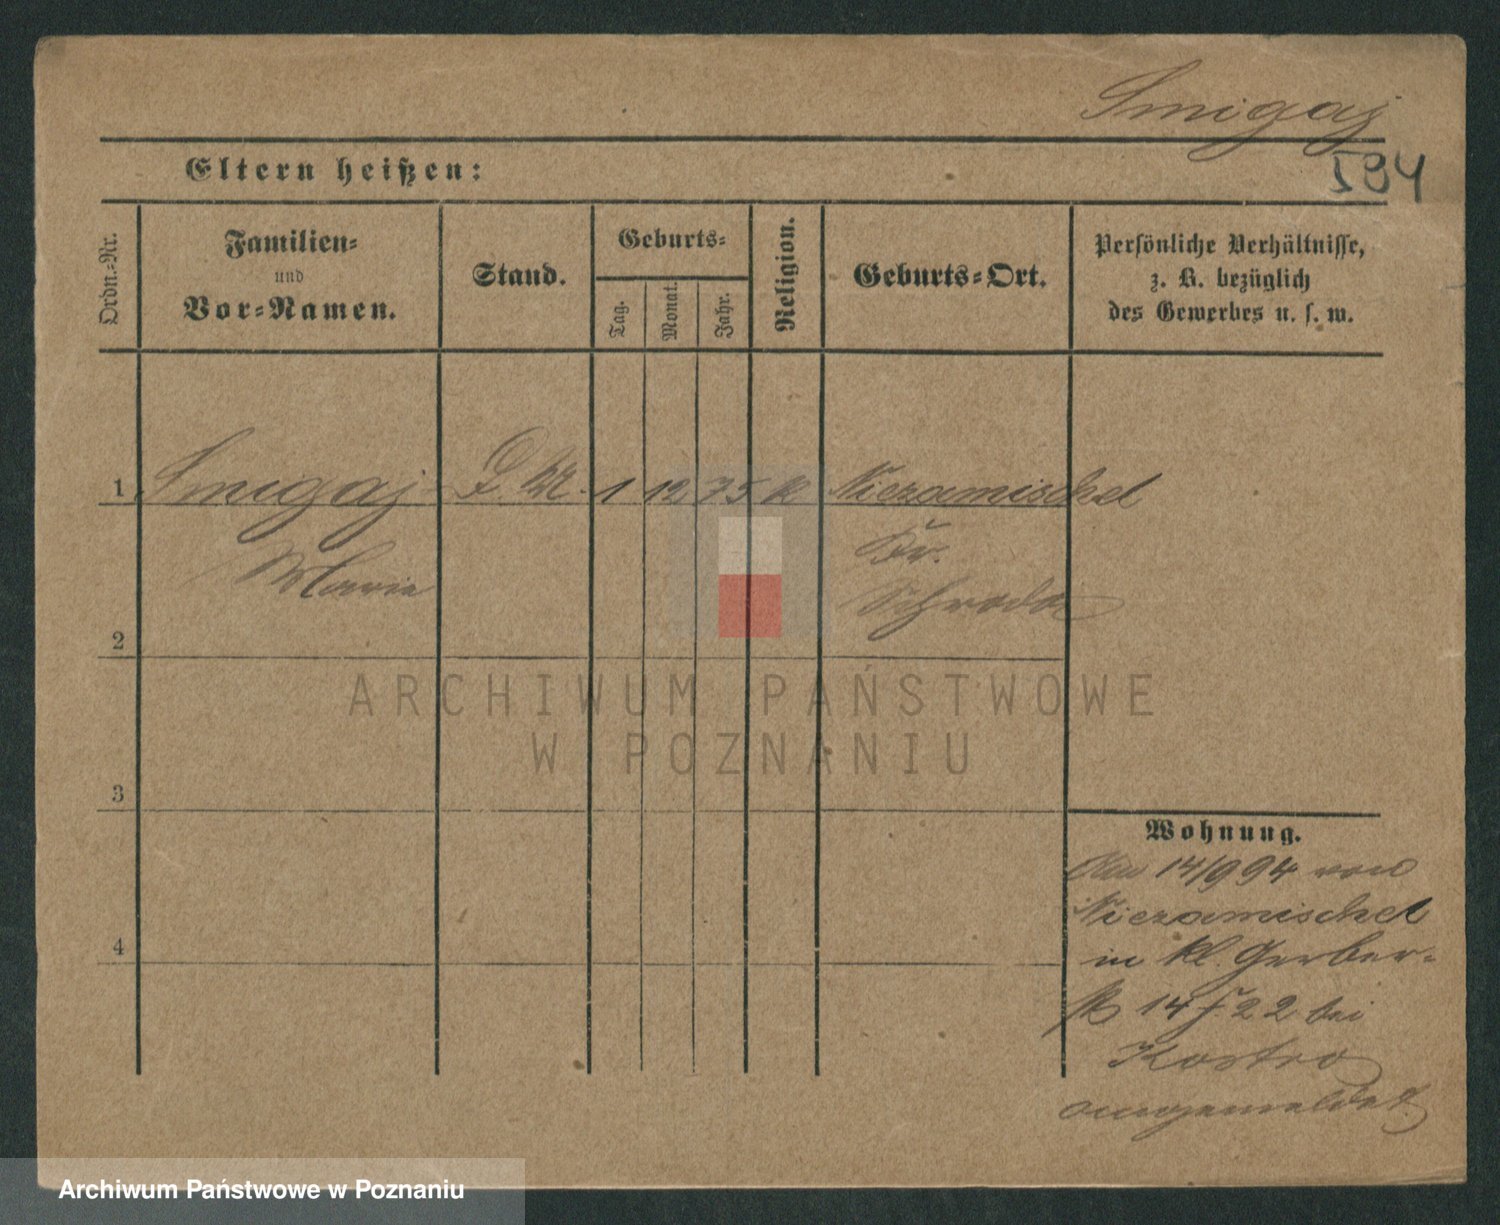 Smigaj
594
Eltern heißen:
Ordn.-Nr.
Familien-
und
Vor-Namen.
Stand.
Geburts-
Tag.
Monat.
Jahr.
Religion.
Geburts-Ort.
Persönliche Verhältnisse,
z. B. bezüglich
des Gewerbes u. s. w.
1 Smigaj D. M. 1 12 75 k Niezamischel
Kr.
Marie Schroda
2
ARCHIWUM PAŃSTWOWE
W POZNANIU
3
Wohnung.
14/9 94 von
Niezamischel
4
in kl. Gerber-
14 I 22 bei
Kostro
angemeldet
Archiwum Państwowe w Poznaniu